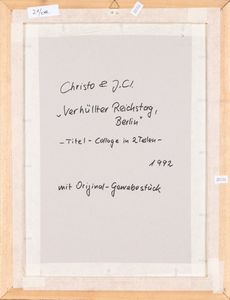 Christo & J.Cl.
„Verhüllter Reichstag,
Berlin"
- Titel - Collage in 2 Teilen -
1992
mit Original-Gewebestück